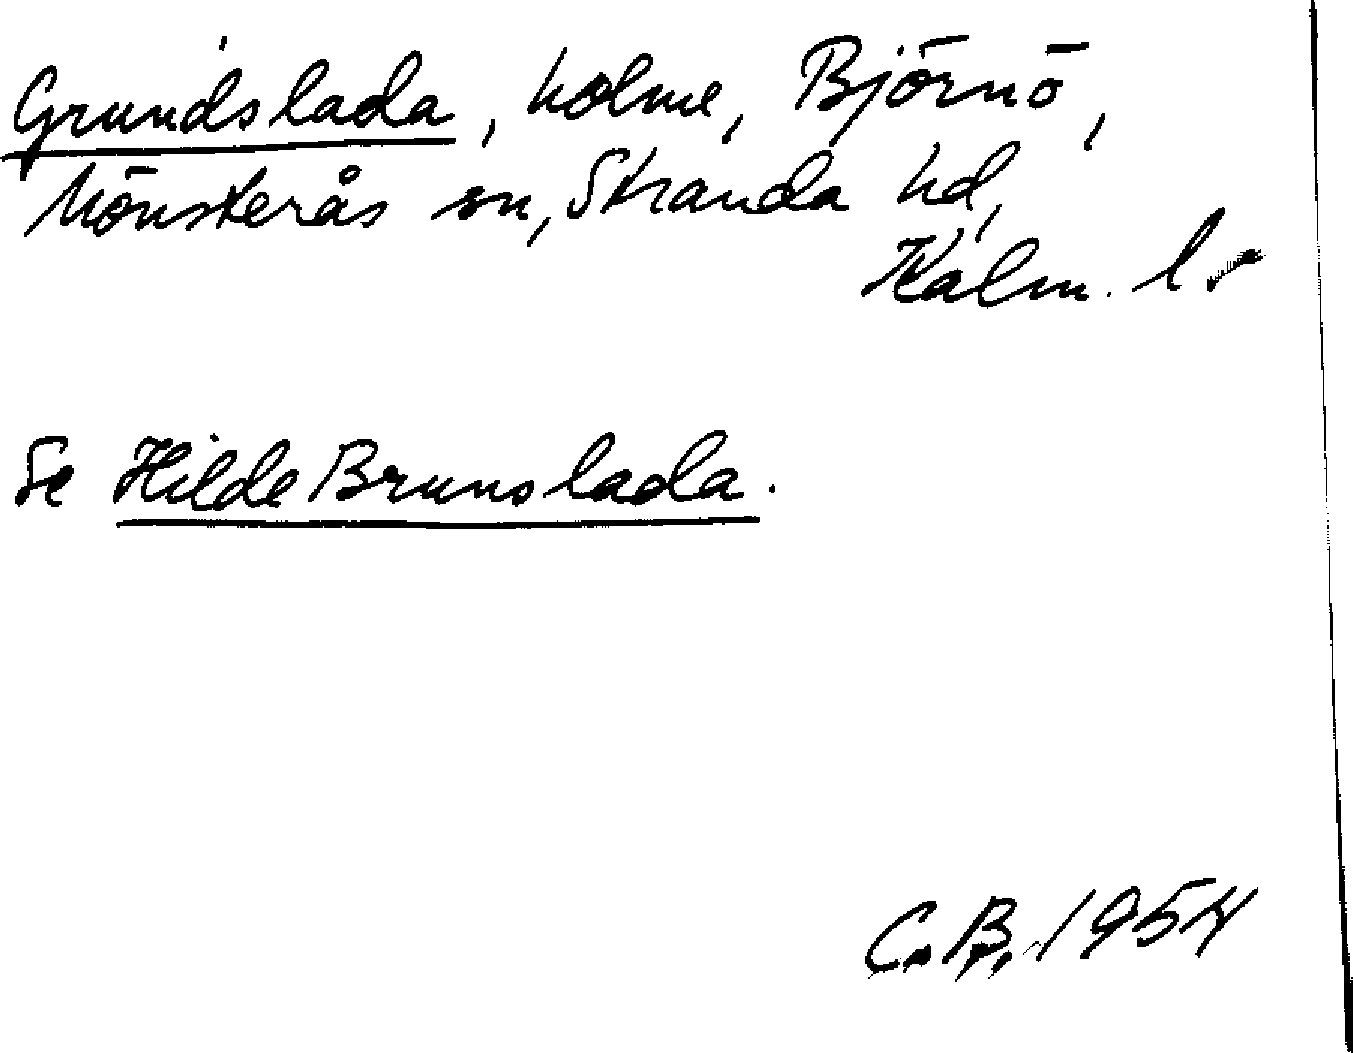 Grundslada, holme, Björnö,
Mönsterås sn, Stranda hd,
Kalm. l.
Se HildeBrunslada.
C.B. 1954